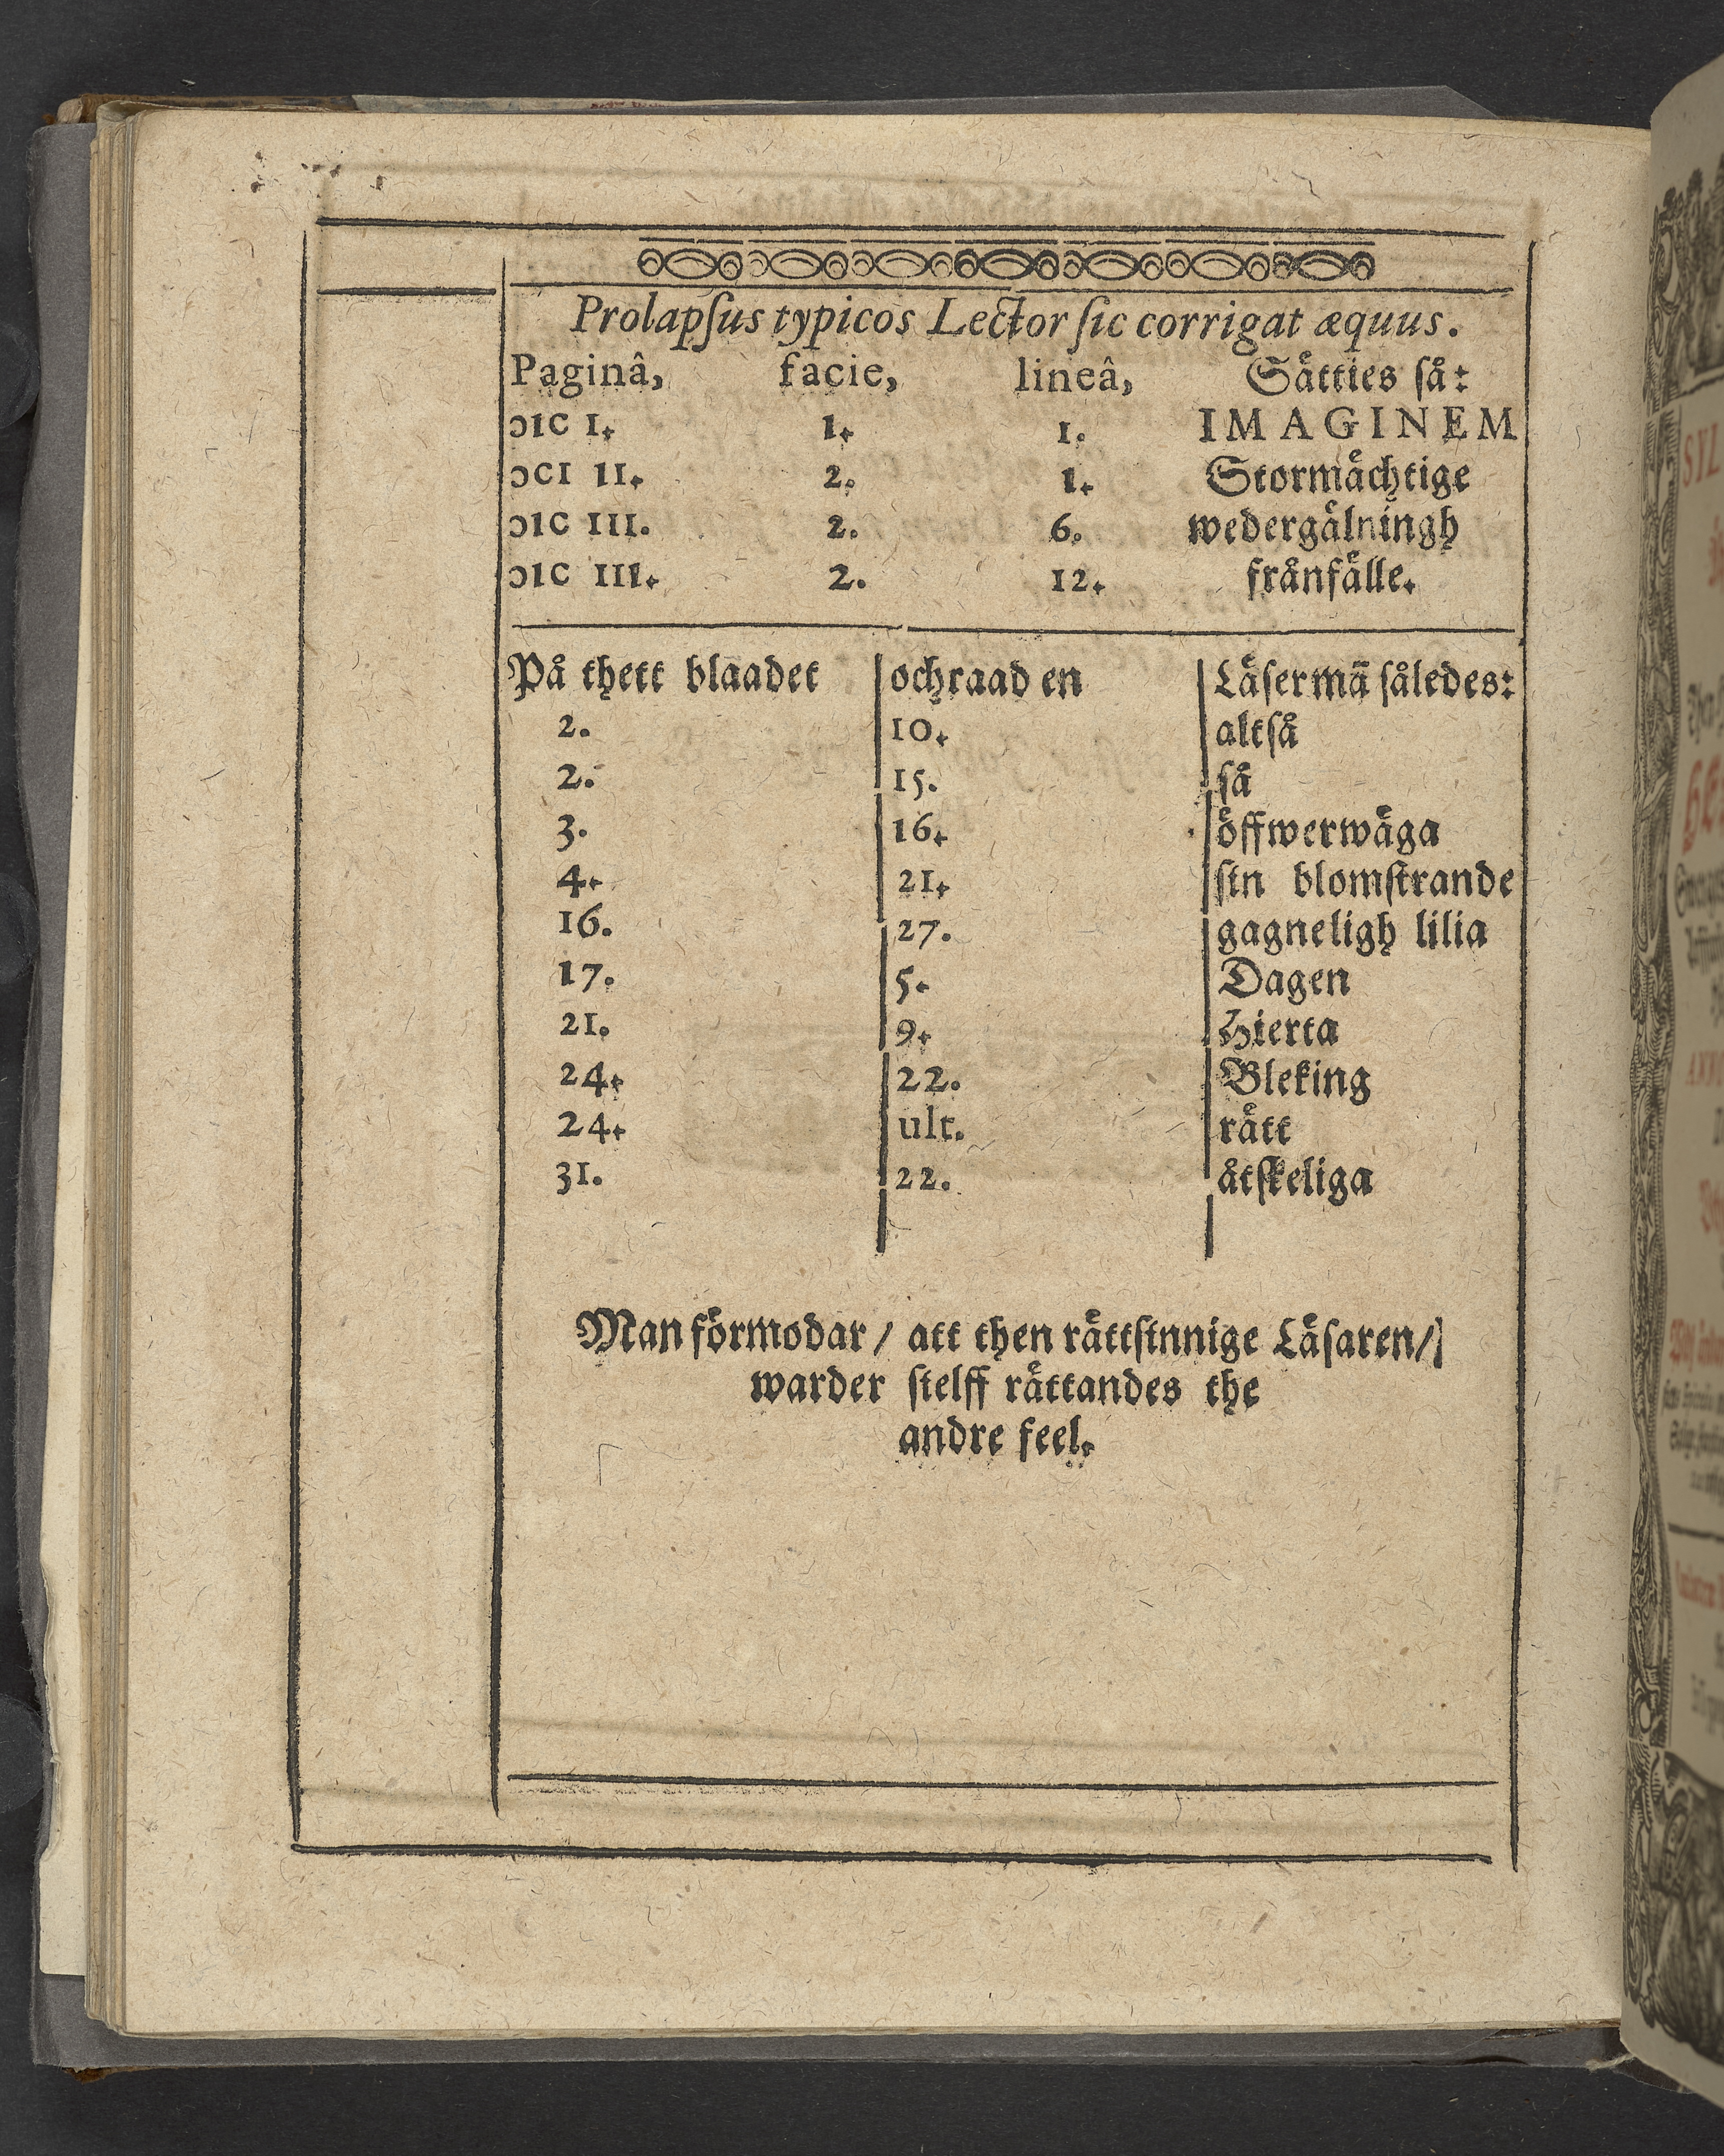 Prolapſus typicos Lector ſic corrigat æquus.
Paginâ, facie, lineâ, Sätties ſå:
ɔıc I. 1. 1. IMAGINEM
ɔcı II. 2. 1. Stormächtige
ɔıc III. 2. 6. wedergälningh
ɔıc III. 2. 12. frånfälle.
På thett blaadet ochraad en Läſer mā̈ ſåledes:
2. 10. altſå
2. 15. ſå
3. 16. öffwerwäga
4. 21. ſin blomſtrande
16. 27. gagneligh lilia
17. 5. Dagen
21. 9. Hierta
24. 22. Bleking
24. ult. rätt
31. 22. åtſkeliga
Man förmodar / att then rättſinnige Läſaren /
warder ſielff rättandes the
andre feel.